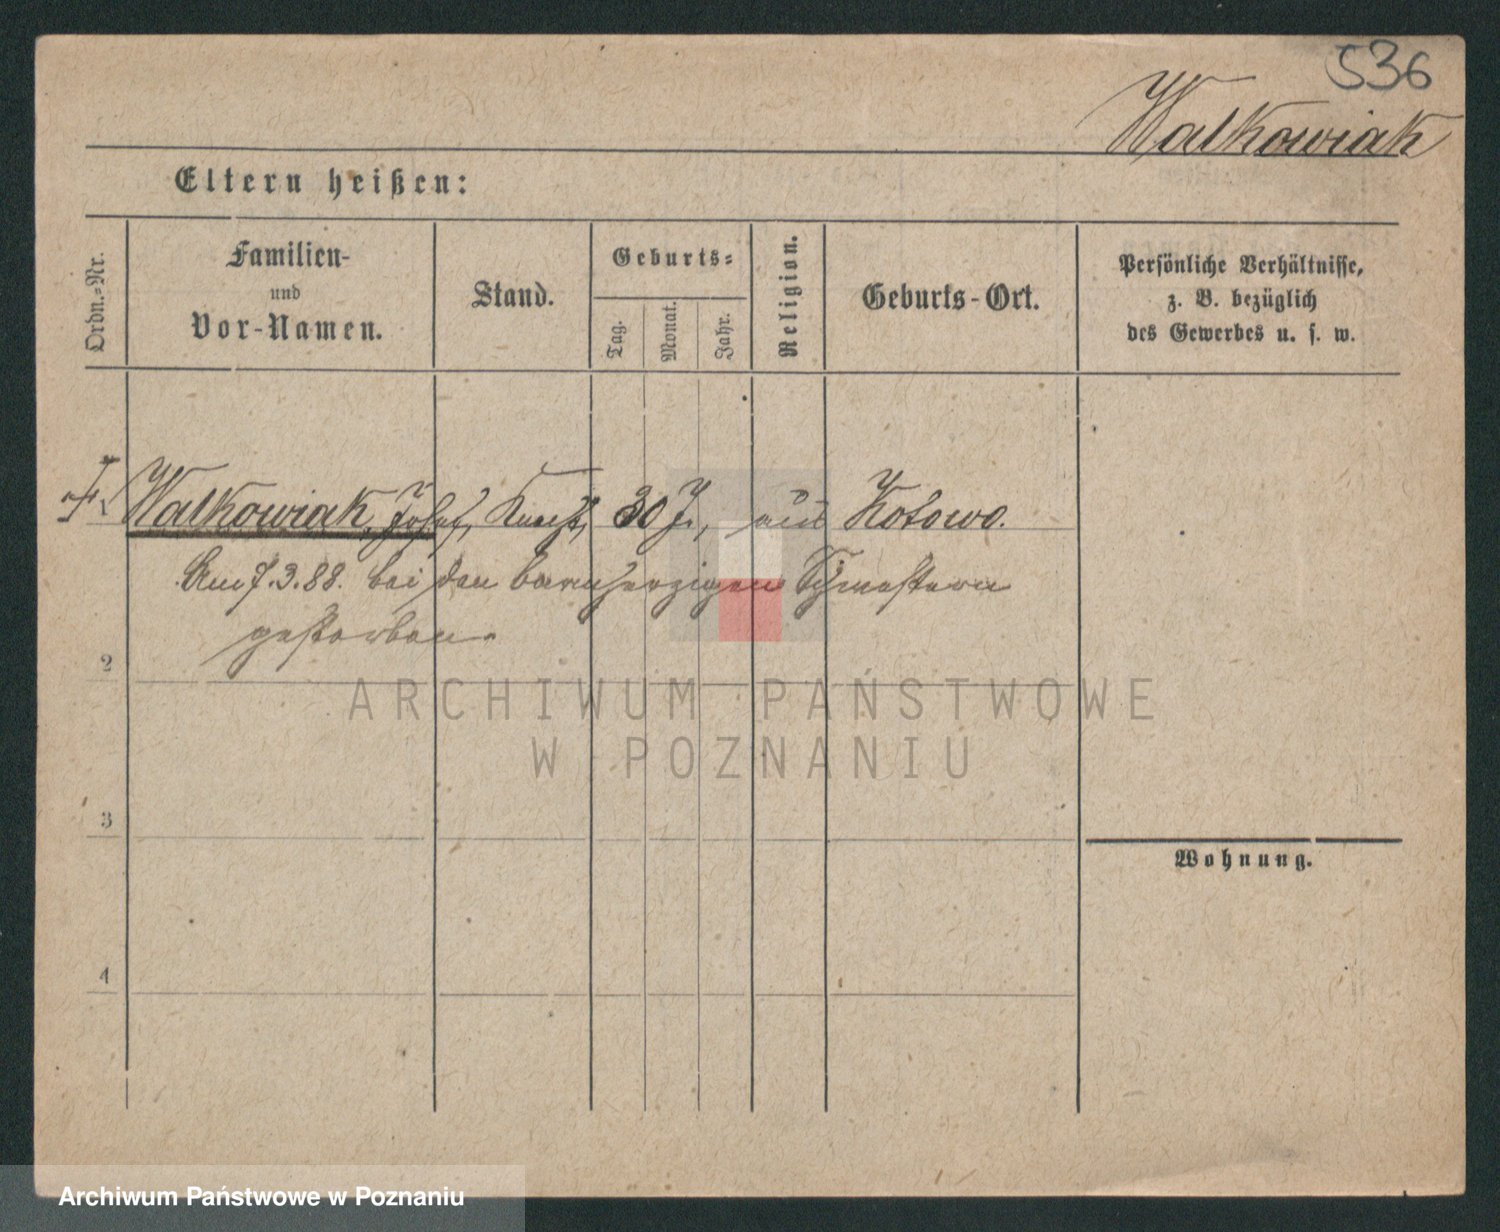 536
Walkowiak
Eltern heißen:
Ordn.-Nr.
Familien-
und
Vor-Namen.
Stand.
Geburts-
Tag.
Monat.
Jahr.
Religion.
Geburts-Ort.
Persönliche Verhältnisse,
z. B. bezüglich
des Gewerbes u. s. w.
Walkowiak, Josef, Knecht, 30 J., aus Kotowo.
Am 7.3.88. bei den barmherzigen Schwestern
gestorben.
2
3
4
Wohnung.
ARCHIWUM PAŃSTWOWE
W POZNANIU
Archiwum Państwowe w Poznaniu